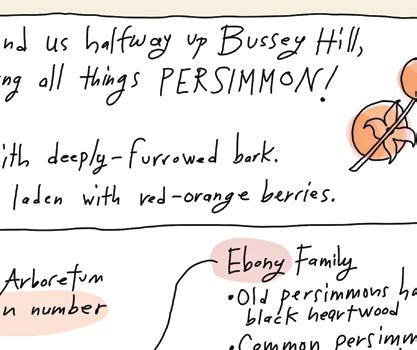 nd us halfway up Bussey Hill,
ng all things PERSIMMON!
ith deeply-furrowed bark.
laden with red-orange berries.
Arboretum
n number
Ebony Family
•Old persimmons ha
black heartwood
•Common persimm